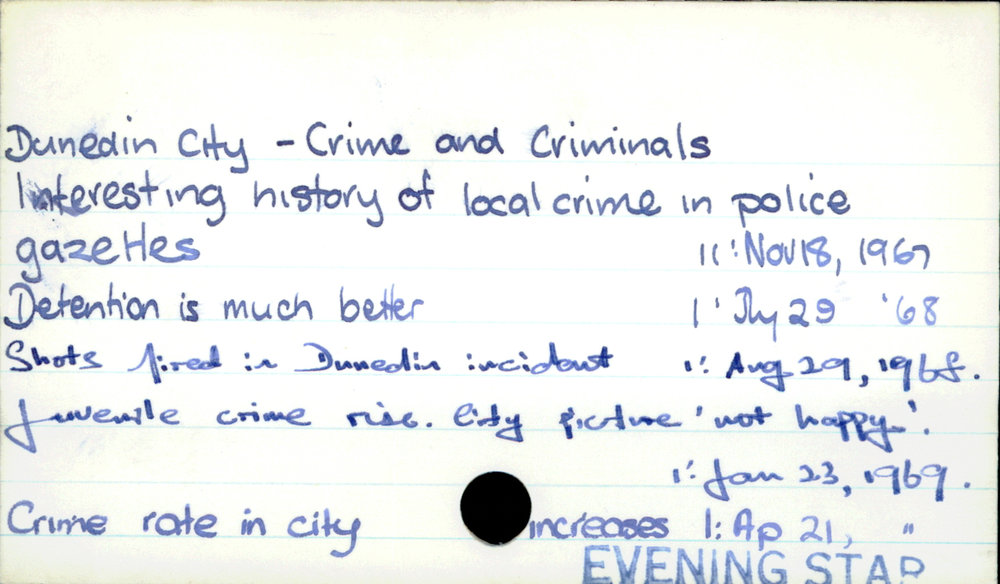 Dunedin City - Crime and Criminals
Interesting history of local crime in police
gazettes 11: Nov 18, 1967
Detention is much better 1: Jly 29 '68
Shots fired in Dunedin incident 1: Aug 29, 1968.
Juvenile crime rise. City picture 'not happy'.
1: Jan 23, 1969.
Crime rate in city increases 1: Ap 21, "
EVENING STAR